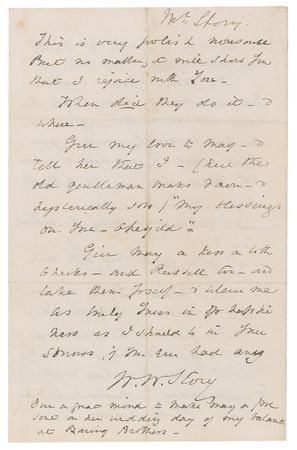 Mr. Story.
This is very foolish nonsense
But no matter, it will show You
that I rejoice with You –
When did they do it – &
where –
Give my love to May – &
tell her that I – (here the
old gentleman breaks down – &
hysterically sobs) "My blessings
on You – Che-ild".
Give May a kiss on both
cheeks – and Russell too – and
take them Yrself – & believe me
as truly Yours in Yr happi
ness as I should be in Your
sorrows, if You Ever had any
W. W. Story
I've a great mind to make May a
on her wedding day of my balance
at Baring Brothers –